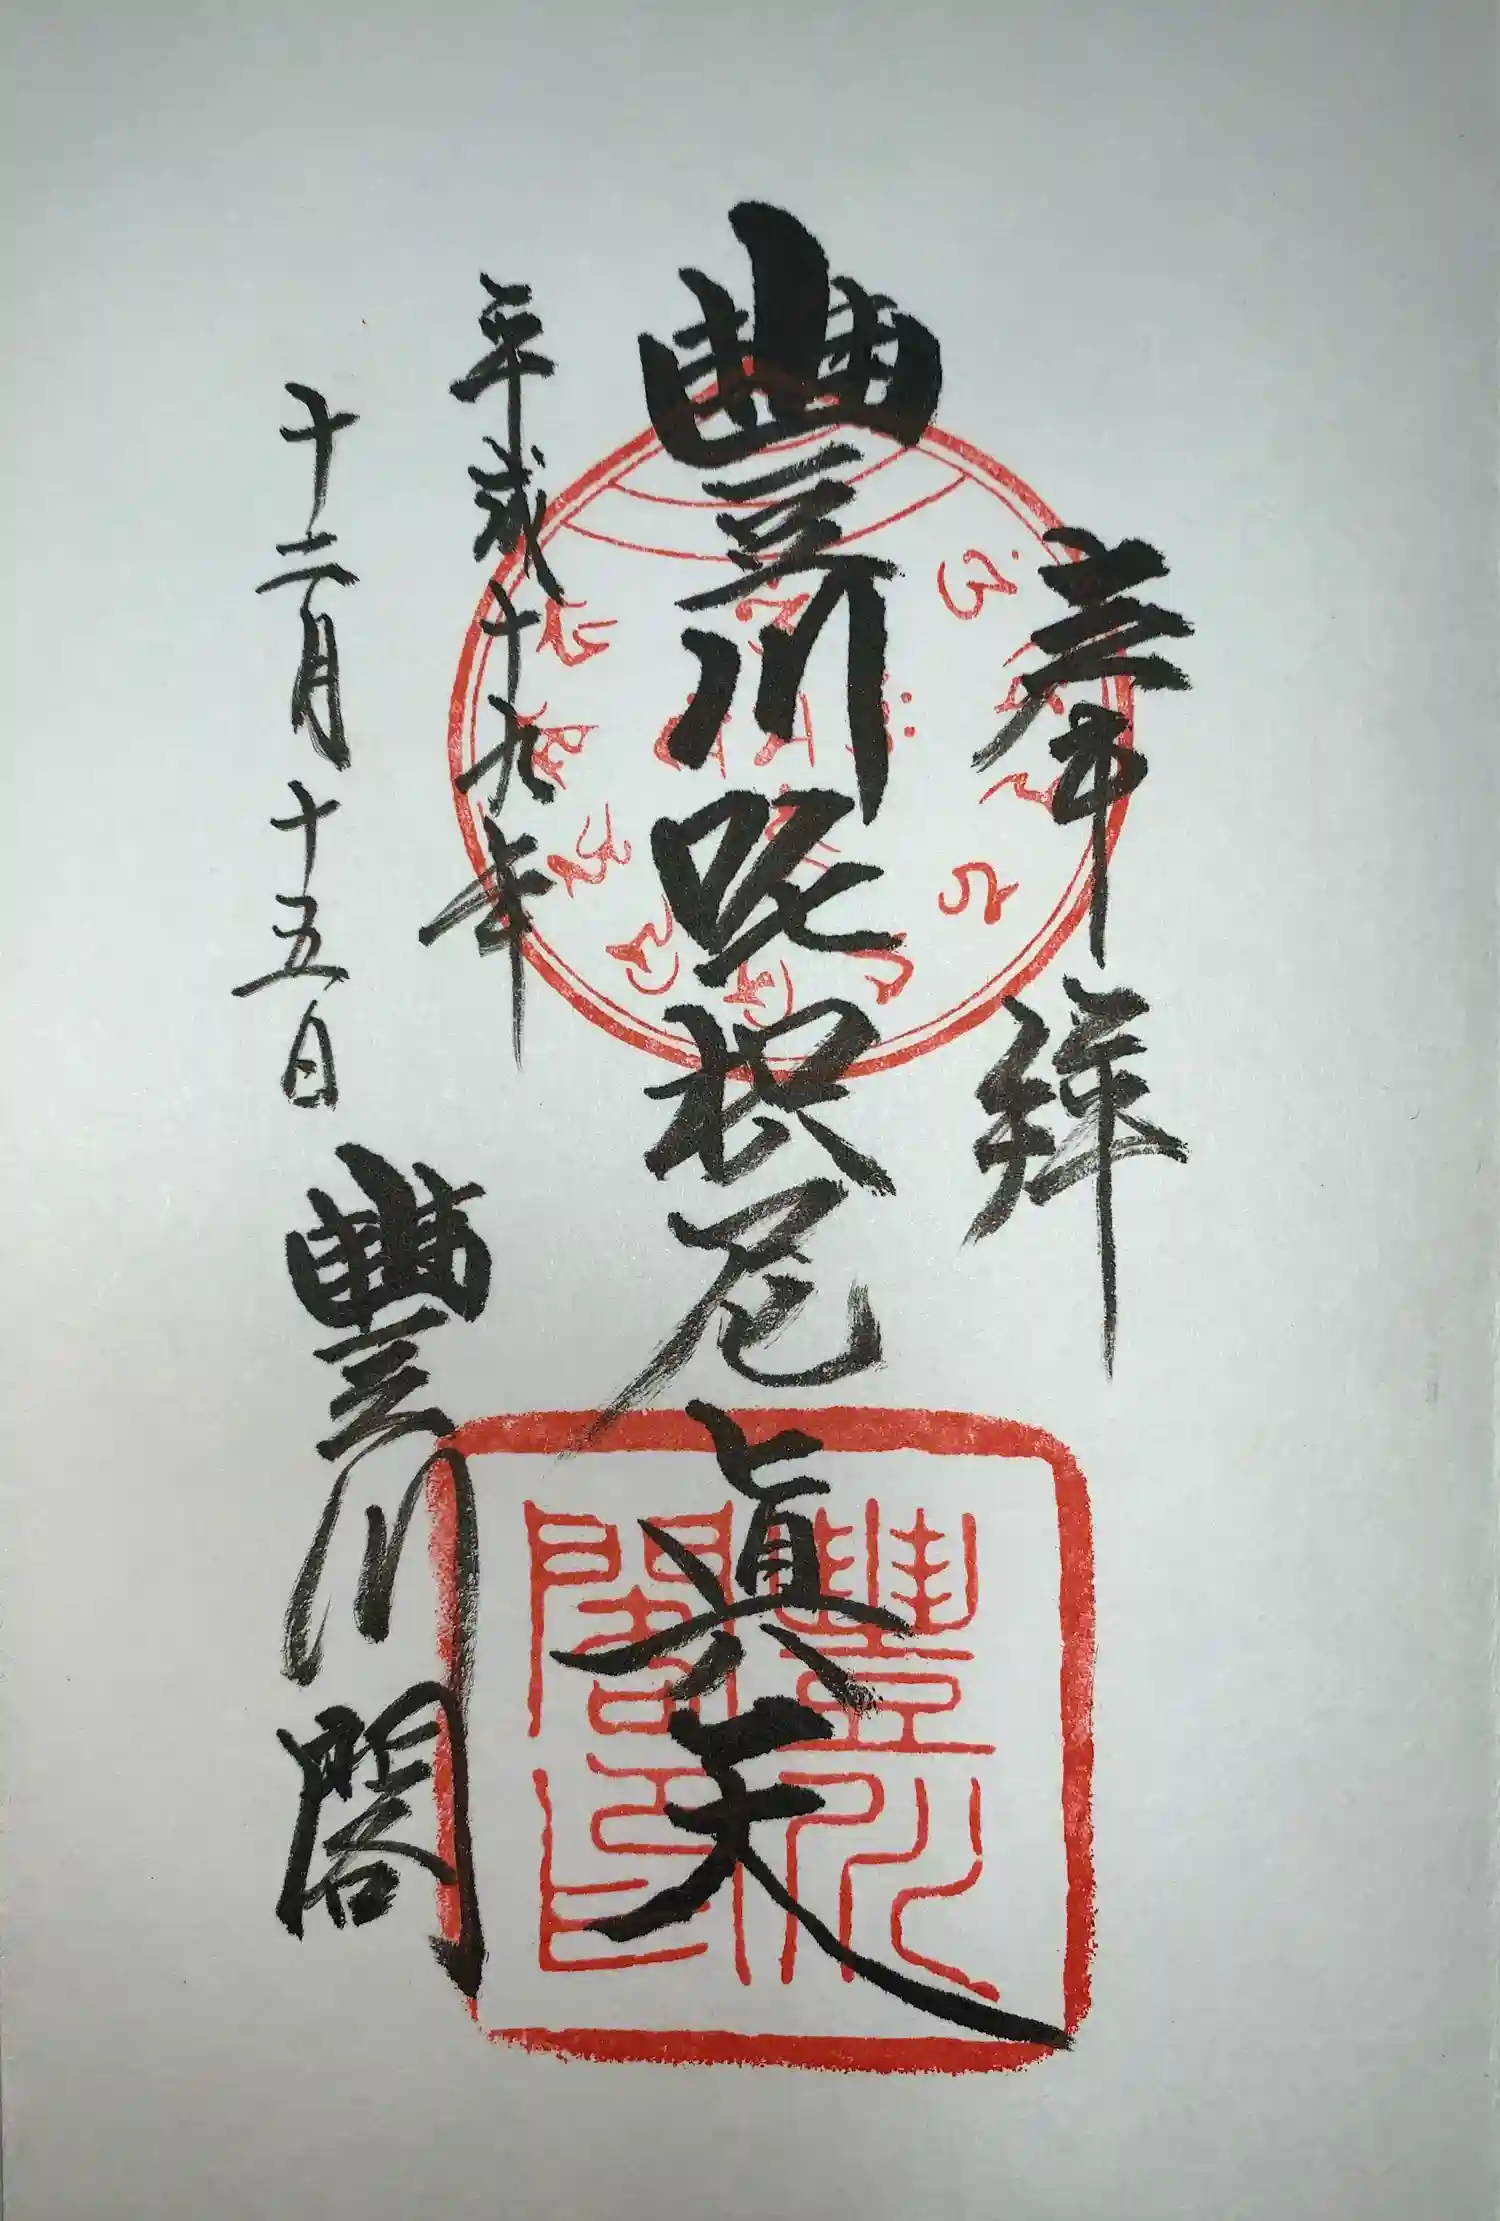 奉拝
豐川吒枳尼眞天
平成十九年
十二月十五日
豐川閣
豐川
閣印